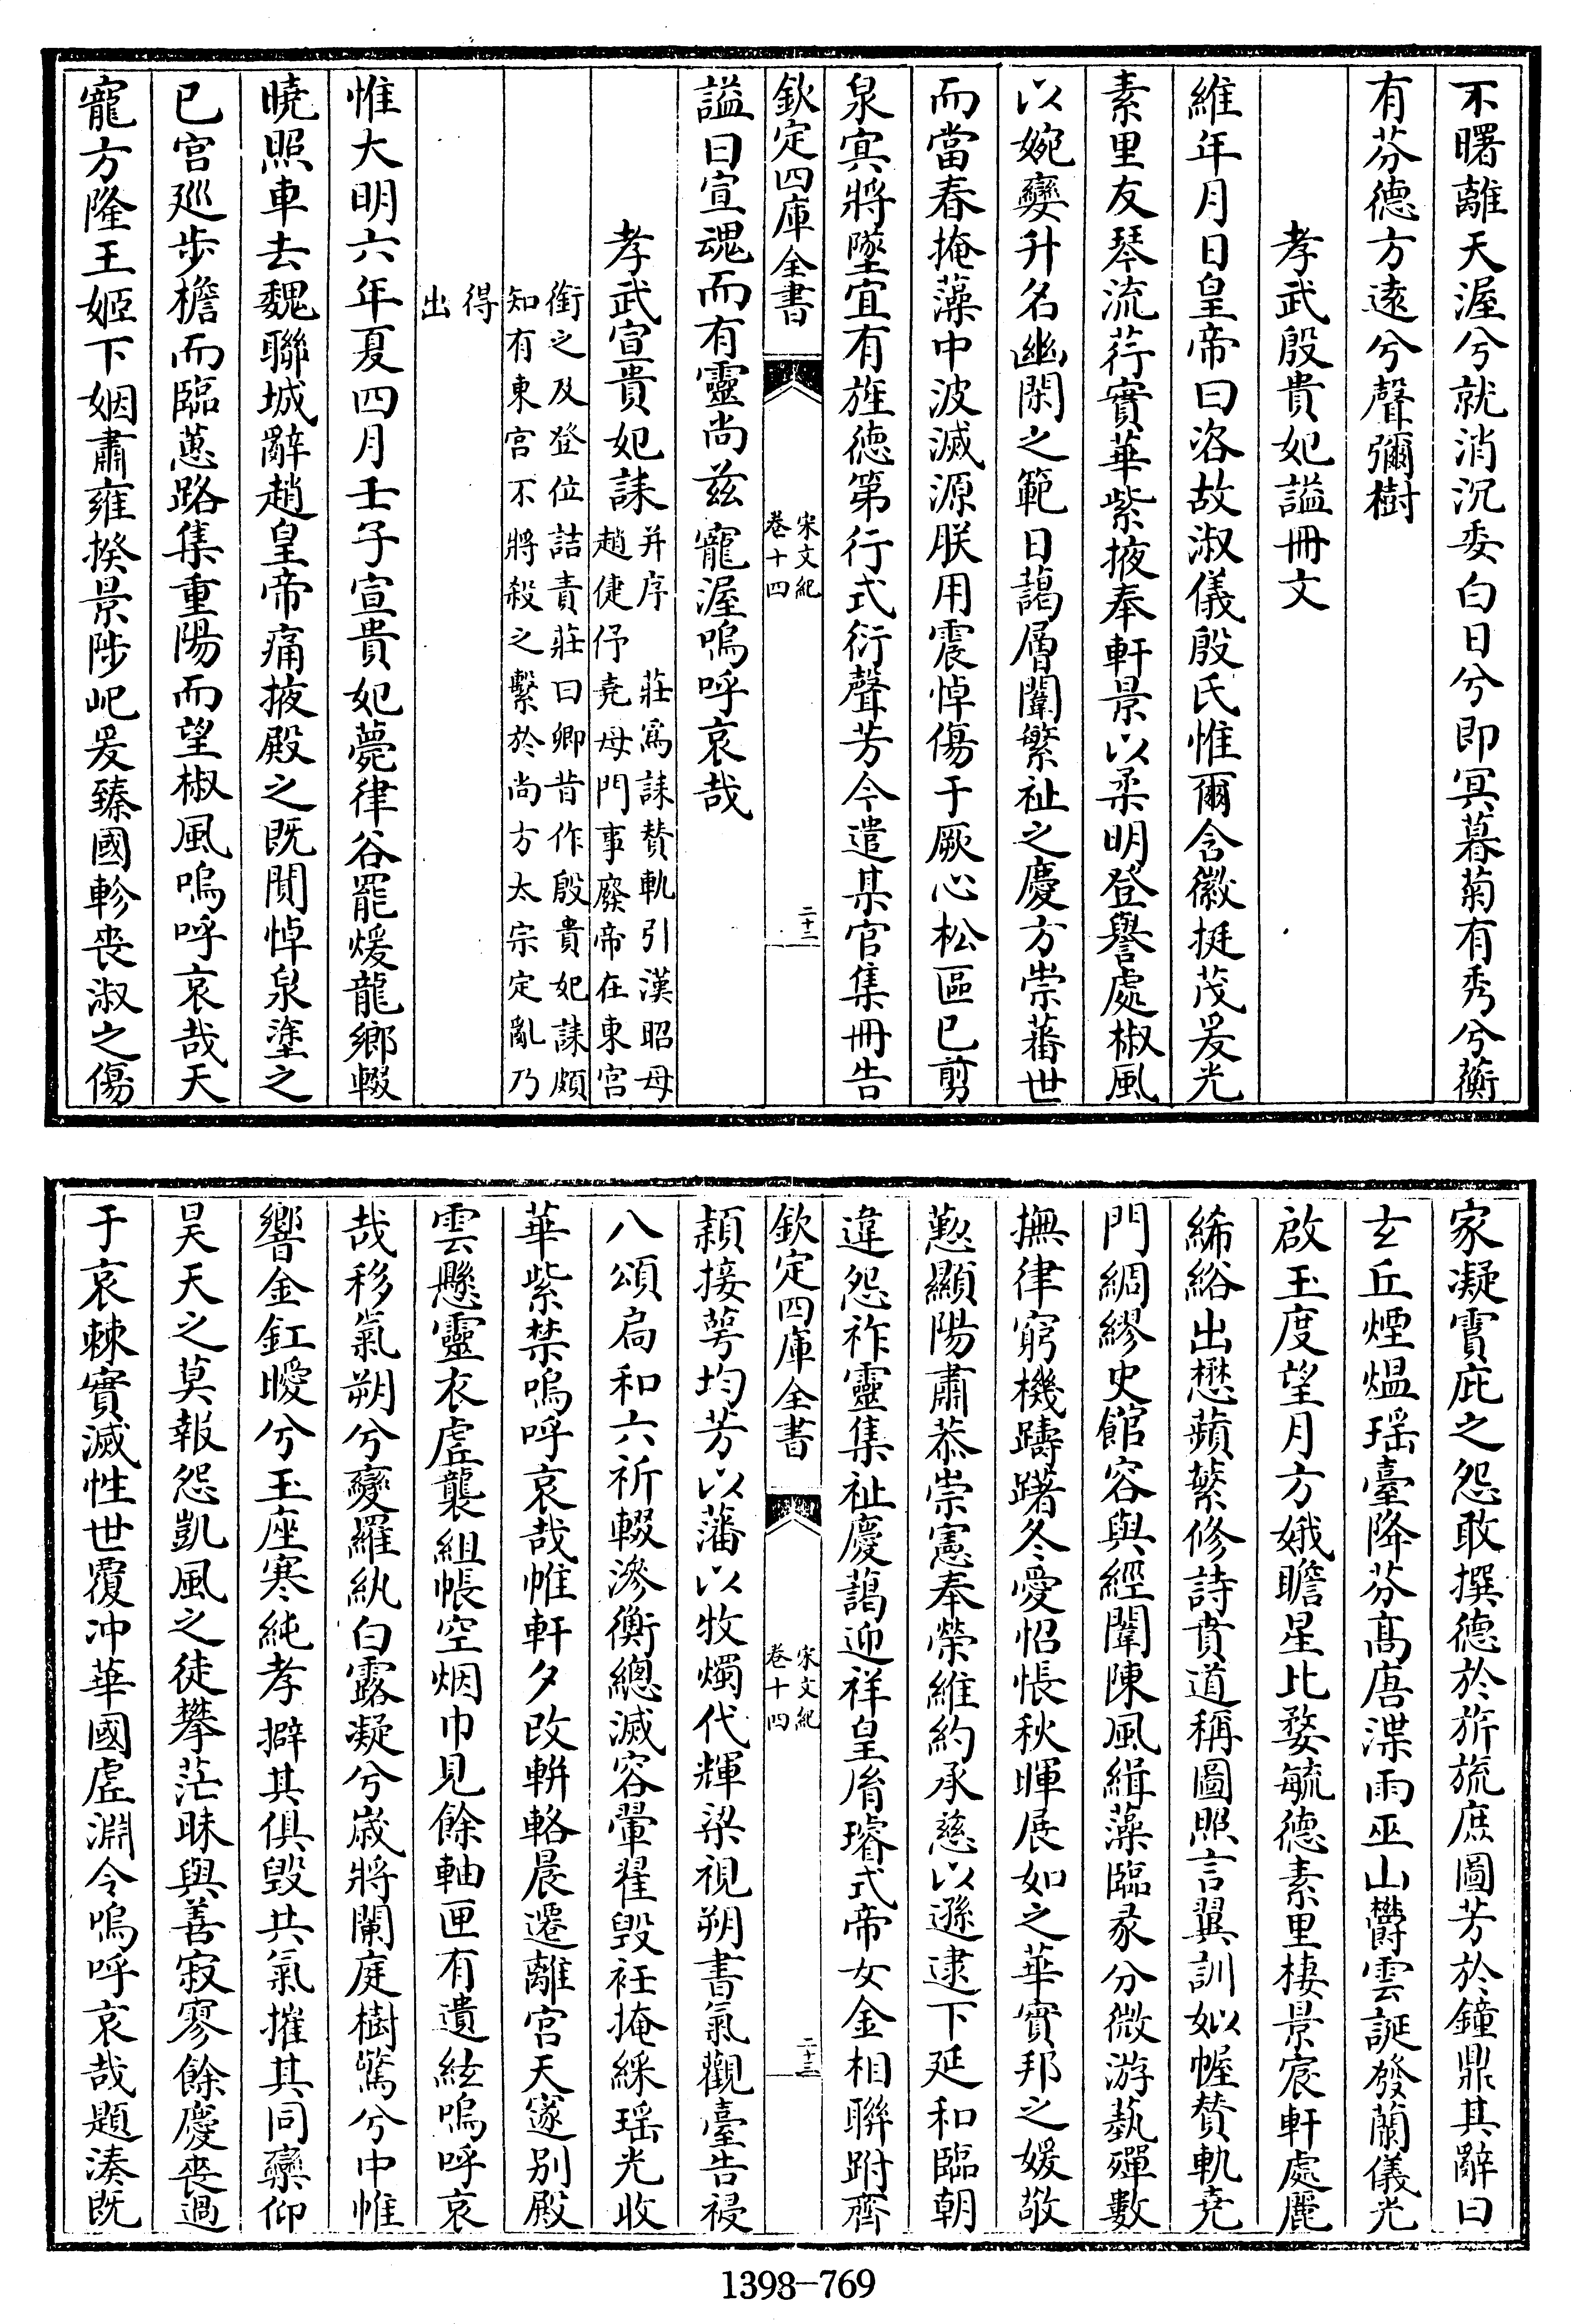 不曙離天渥兮就消沉委白日兮即冥暮菊有秀兮蘅
有芬德方遠兮聲彌樹
孝武殷貴妃謚冊文
維年月日皇帝曰咨故淑儀殷氏惟爾含徽挺茂爰光
素里友琴流荇實華紫掖奉軒景以柔明登譽處椒風
以婉孌升名幽閑之範日藹層闈繁祉之慶方崇蕃世
而當春掩藻中波滅源朕用震悼傷于厥心松區已剪
泉寘將墜宜有旌德第行式衍聲芳今遣某官集冊告
欽定四庫全書
宋文紀
卷十四
二十二
謚曰宣魂而有靈尚兹寵渥嗚呼哀哉
孝武宣貴妃誄
并序 莊爲誄賛軌引漢昭母
趙倢伃堯母門事廢帝在東宫
銜之及登位詰責莊曰卿昔作殷貴妃誄頗
知有東宫不將殺之繫於尚方太宗定亂乃
得
出
惟大明六年夏四月壬子宣貴妃薨律谷罷煖龍鄉輟
曉照車去魏聯城辭趙皇帝痛掖殿之既閴悼泉塗之
已宫廵步檐而臨蕙路集重陽而望椒風嗚呼哀哉天
寵方隆王姬下姻肅雍揆景陟屺爰臻國軫喪淑之傷
家凝霣庇之怨敢撰德於旂旒庶圖芳於鐘鼎其辭曰
玄丘煙熅瑶臺降芬髙唐渫雨巫山欝雲誕發蘭儀光
啟玉度望月方娥瞻星比婺毓德素里棲景宸軒處麗
絺綌出懋蘋蘩修詩賁道稱圖照言翼訓姒幄賛軌堯
門綢繆史館容與經闈陳風緝藻臨彖分微游藝殫數
撫律窮機躊躇冬愛怊悵秋暉展如之華實邦之媛敬
懃顯陽肅恭崇憲奉榮維約承慈以遜逮下延和臨朝
違怨祚靈集祉慶藹迎祥皇胤璿式帝女金相聯跗齊
欽定四庫全書
宋文紀
卷十四
二十三
頴接萼均芳以藩以牧燭代輝梁視朔書氣觀臺告祲
八頌扃和六祈輟滲衡總滅容翬翟毁衽掩綵瑶光收
華紫禁嗚呼哀哉帷軒夕改軿輅晨遷離宫天邃别殿
雲懸靈衣虚襲組帳空烟巾見餘軸匣有遺絃嗚呼哀
哉移氣朔兮變羅紈白露凝兮歳將闌庭樹驚兮中帷
響金釭曖兮玉座寒純孝擗其俱毁共氣摧其同欒仰
昊天之莫報怨凱風之徒攀茫昧與善寂寥餘慶喪過
于哀棘實滅性世覆冲華國虚淵令嗚呼哀哉題湊既
1398-769